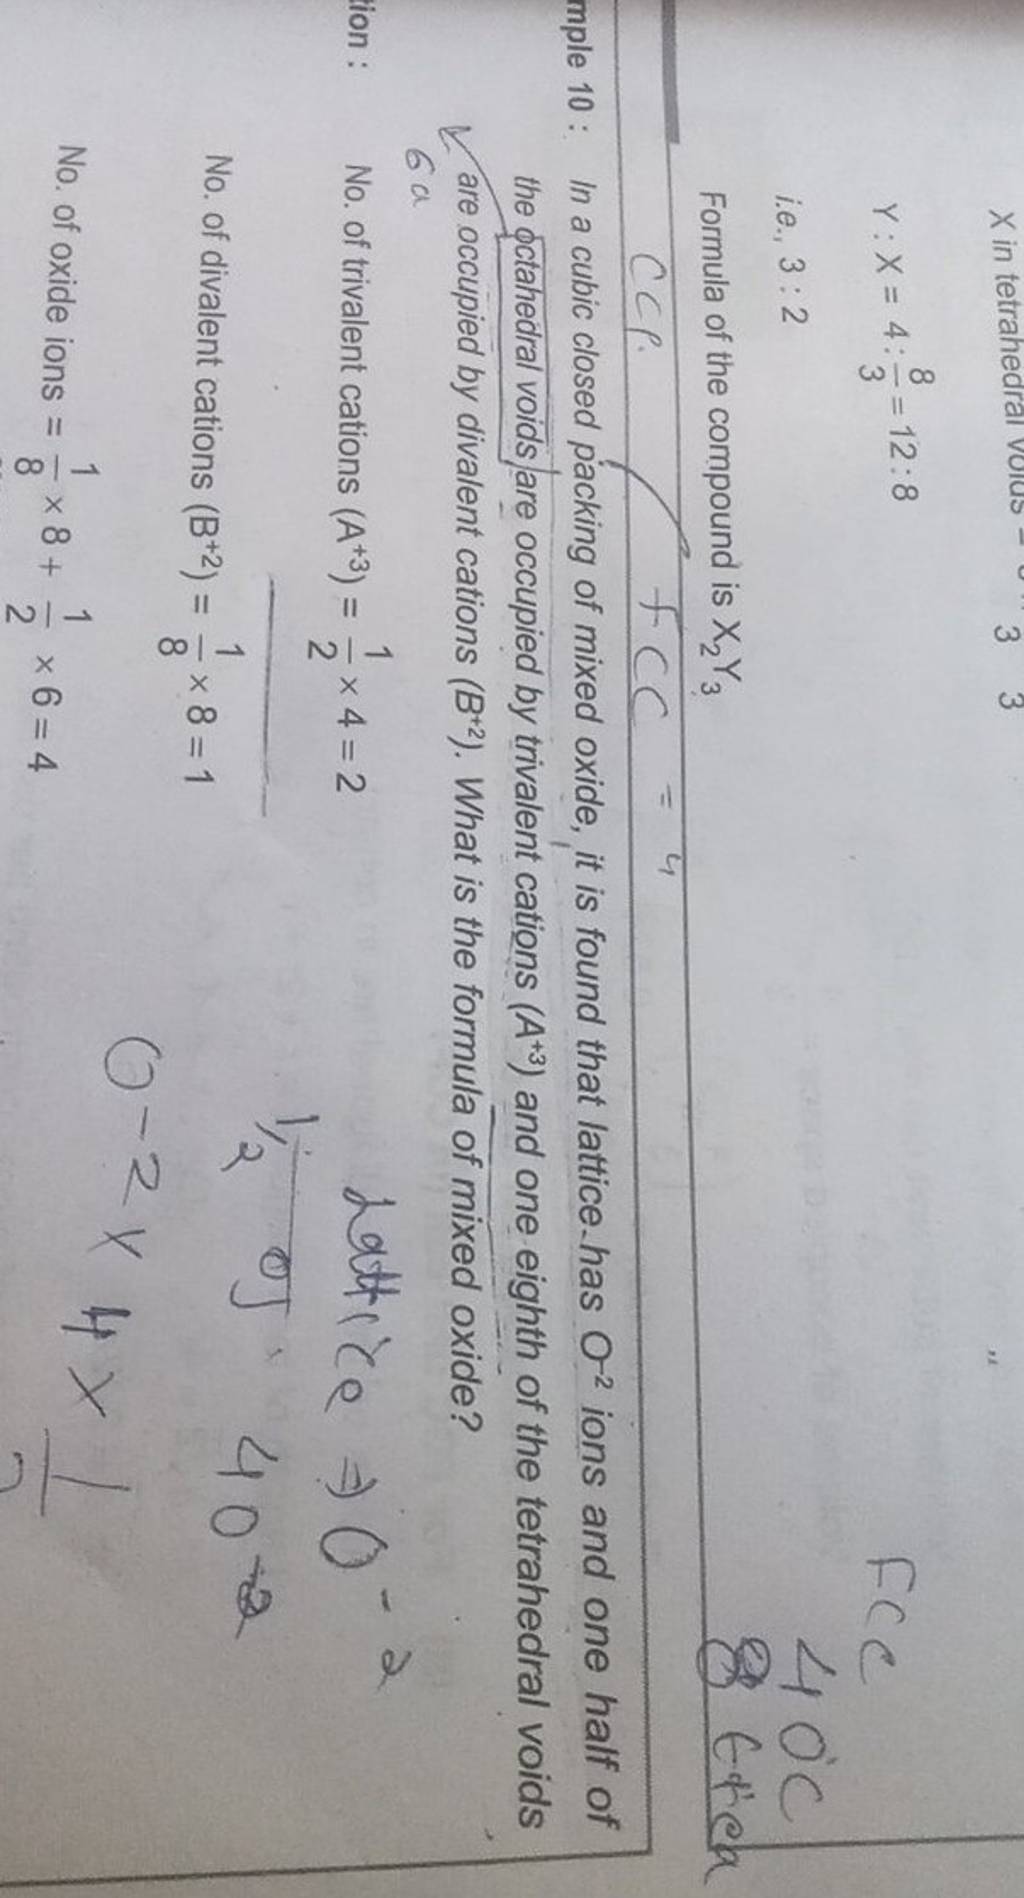 X in tetrahedral voids =
3 3
Y : X = 4 : 8/3 = 12 : 8
i.e., 3 : 2
Formula of the compound is X₂Y₃
FCC
4 OC
8
CCP.
FCC = 4
mple 10 : In a cubic closed packing of mixed oxide, it is found that lattice has O⁻² ions and one half of
the octahedral voids are occupied by trivalent cations (A⁺³) and one eighth of the tetrahedral voids
are occupied by divalent cations (B⁺²). What is the formula of mixed oxide?
tion : No. of trivalent cations (A⁺³) = 1/2 × 4 = 2
Lattice ⇒ O⁻²
1/2 of 4 O⁻²
No. of divalent cations (B⁺²) = 1/8 × 8 = 1
O-2 × 4 × 1
No. of oxide ions = 1/8 × 8 + 1/2 × 6 = 4